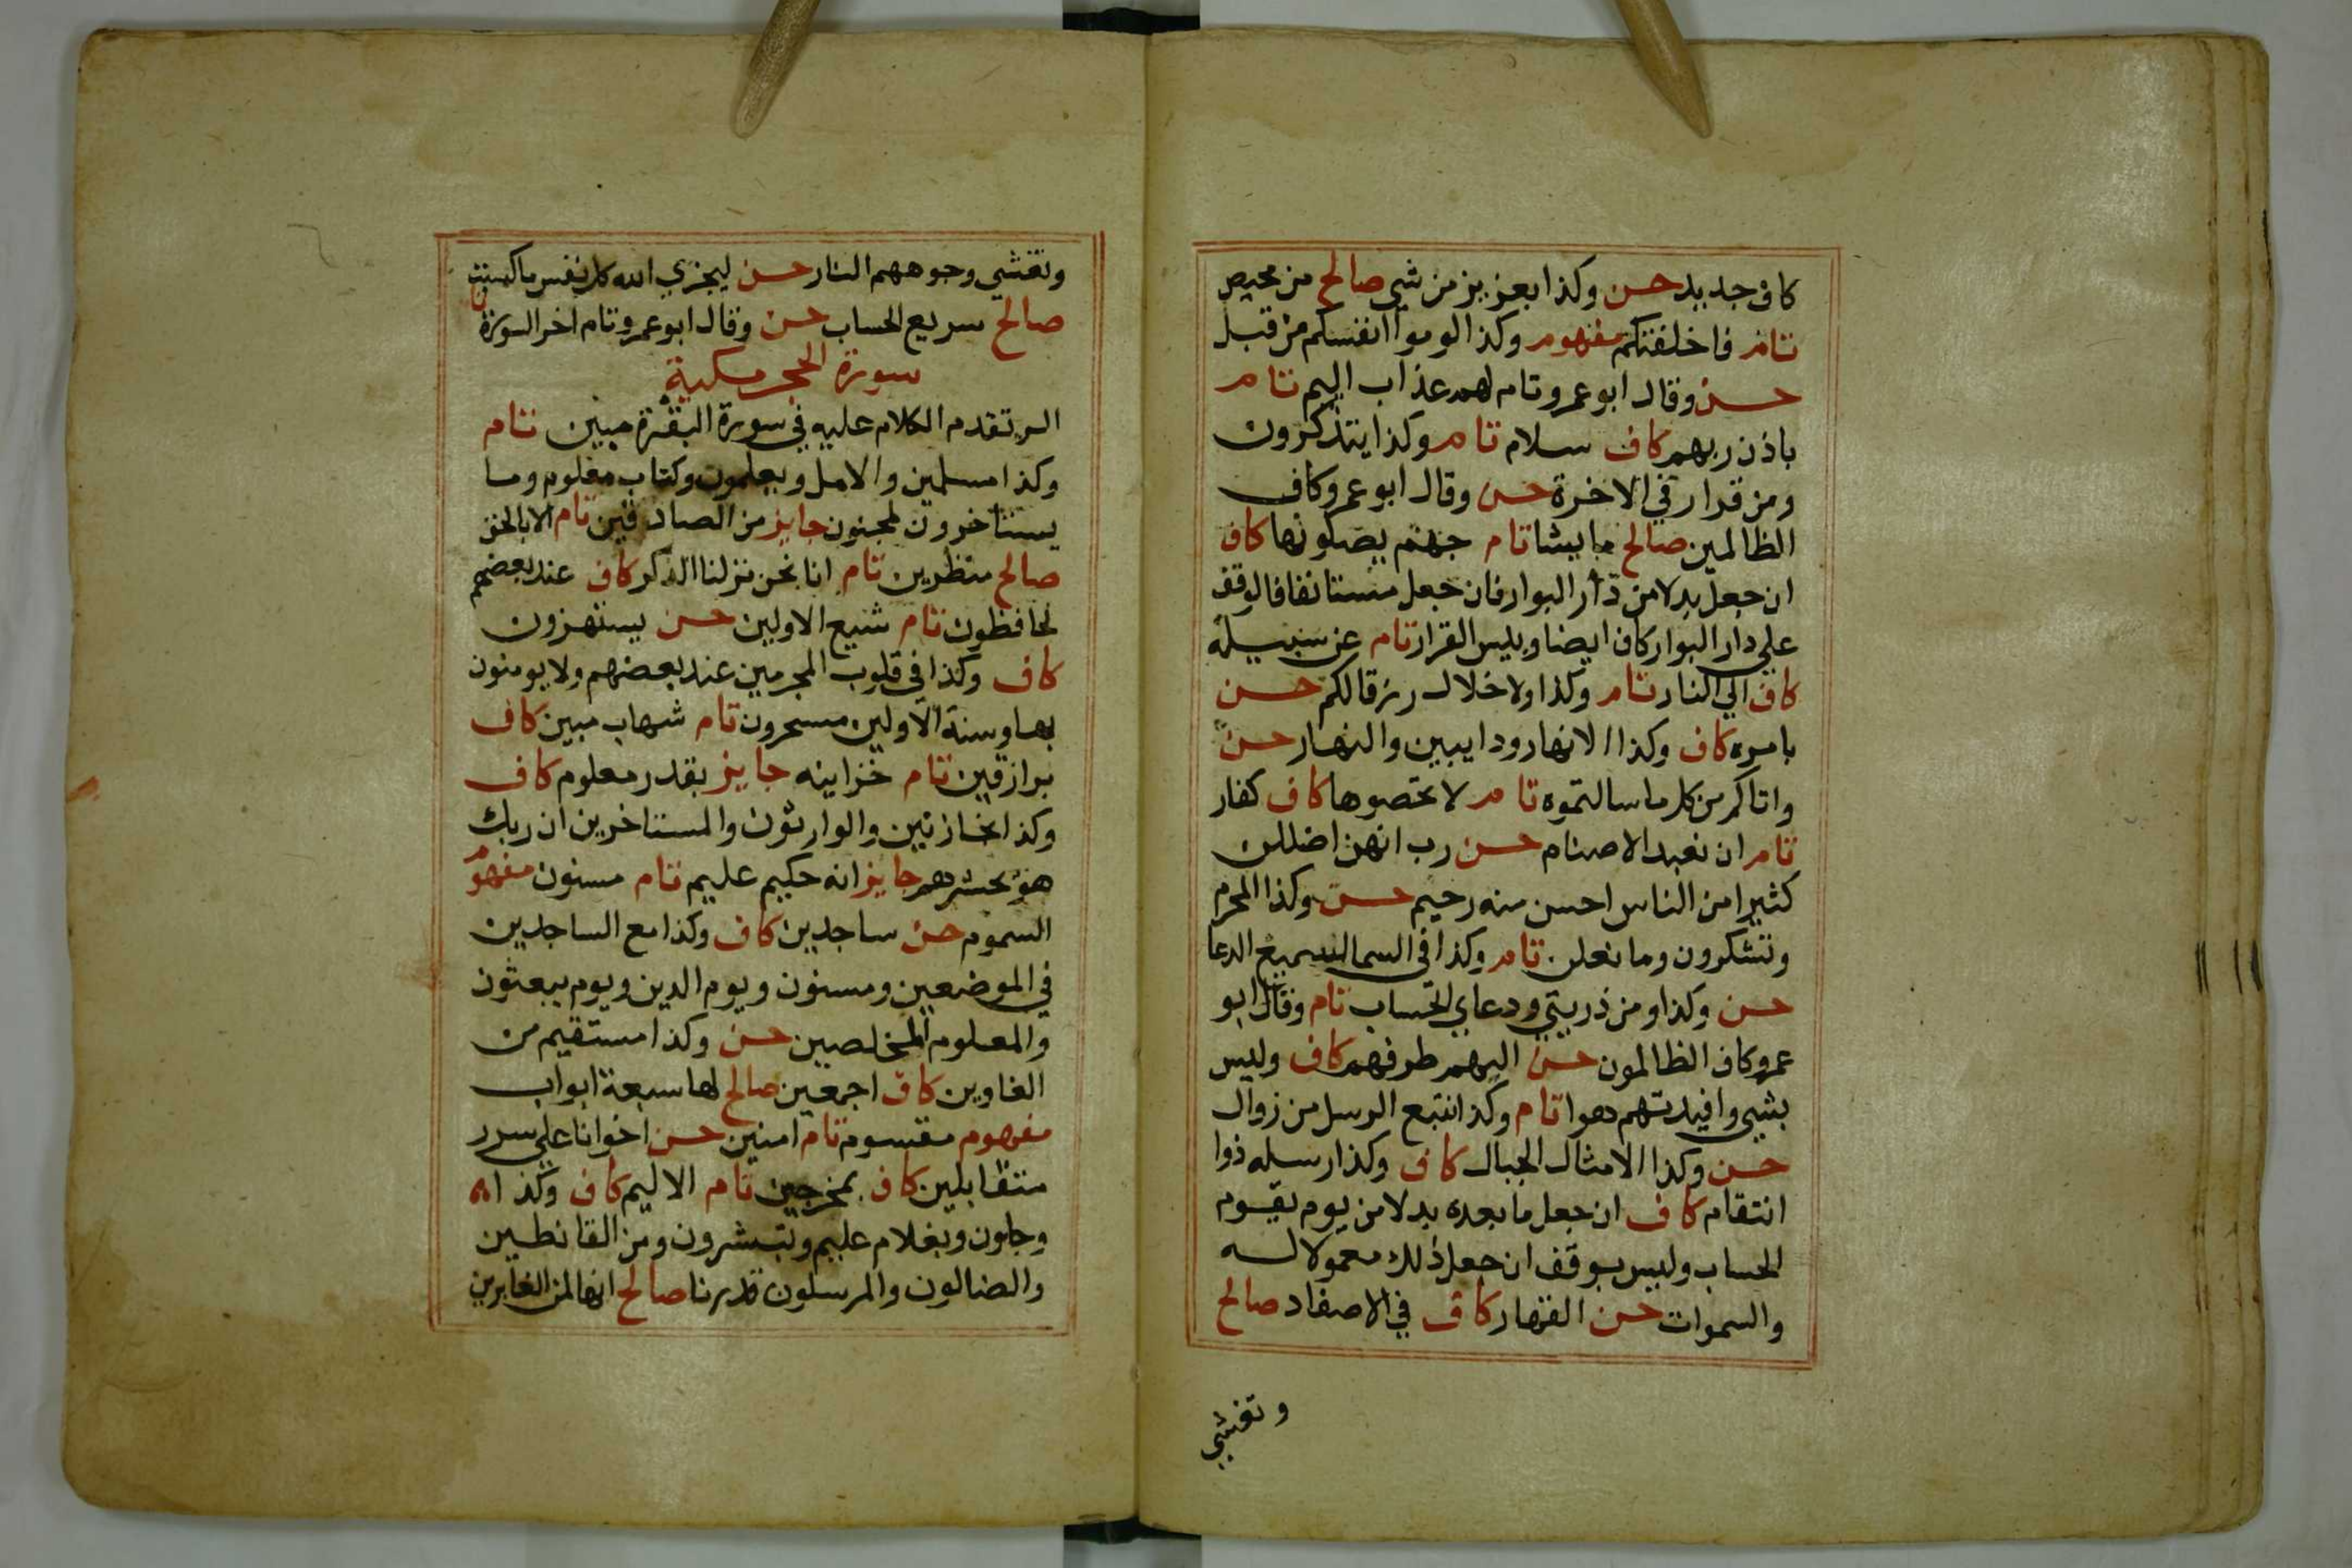 كاف جديد حسن وكذا بعزيز من شي صالح من محيص
تام فاخلفتكم مفهوم وكذا لوموا انفسكم من قبل
حسن وقال ابو عمرو تام لهم عذاب اليم تام
باذن ربهم كاف سلام تام وكذا يتذكرون
ومن قرار في الاخرة حسن وقال ابو عمرو كاف
الظالمين صالح ما يشا تام جهنم يصلونها كاف
ان جعل بدلا من دار البوار فان جعل مستانفا فالوقف
علي دار البوار كاف ايضا وبيس القرار تام عن سبيله
كاف الي النار تام وكذا ولا خلال رزقا لكم حسن
بامره كاف وكذا الانهار ودايبين والنهار حسن
واتاكم من كل ما سالتموه تام لا تحصوها كاف كفار
تام ان نعبد الاصنام حسن رب انهن اضللن
كثيرا من الناس احسن منه رحيم حسن وكذا المحرم
وتشكرون وما نعلن تام وكذا في السما لسميع الدعا
حسن وكذا ومن ذريتي ودعاي الحساب تام وقال ابو
عمرو كاف الظالمون حسن اليهم طرفهم كاف وليس
بشي وافيدتهم هوا تام وكذا نتبع الرسل من زوال
حسن وكذا الامثال الجبال كاف وكذا رسله ذوا
انتقام كاف ان جعل ما بعده بدلا من يوم يقوم
الحساب وليس بوقف ان جعل ذلك معمولا له
والسموات حسن القهار كاف في الاصفاد صالح
وتغشي
وتغشي وجوههم النار حسن ليجزي الله كل نفس ما كسبت
صالح سريع الحساب حسن وقال ابو عمرو تام اخر السورة
سورة الحجر مكية
الر تقدم الكلام عليه في سورة البقرة مبين تام
وكذا مسلمين والامل ويعلمون وكتاب معلوم وما
يستاخرون لمجنون جايز من الصادقين تام الا بالحق
صالح منظرين تام انا نحن نزلنا الذكر كاف عند بعضهم
لحافظون تام شيع الاولين حسن يستهزون
كاف وكذا في قلوب المجرمين عند بعضهم ولا يومنون
به وسنة الاولين مسحرون تام شهاب مبين كاف
برازقين تام خزاينه جايز بقدر معلوم كاف
وكذا بخازنين والوارثون والمستاخرين ان ربك
هو يحشرهم جايز انه حكيم عليم تام مسنون مفهوم
السموم حسن ساجدين كاف وكذا مع الساجدين
في الموضعين ومسنون ويوم الدين ويوم يبعثون
والمعلوم المخلصين حسن وكذا مستقيم من
الغاوين كاف اجمعين صالح لها سبعة ابواب
مفهوم مقسوم تام امنين حسن اخوانا علي سرر
متقابلين كاف بمخرجين تام الاليم كاف وكذا
وجلون وبغلام عليم وتبشرون ومن القانطين
والضالون والمرسلون قدرنا صالح انها لمن الغابرين